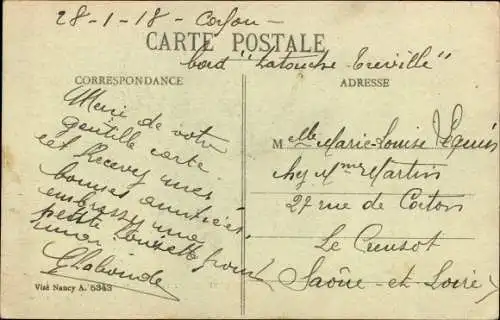 28-1-18 - Corfou -
CARTE POSTALE
bord "Latouche Tréville"
CORRESPONDANCE
ADRESSE
Merci de votre
gentille carte
et Recevez mes
bonnes amitiés
embrassez une
petite pour
moi
Mlle Marie-Louise
chez Mme Martin
27 rue de
Le Creusot
(Saône-et-Loire)
Visé Nancy A. 5343